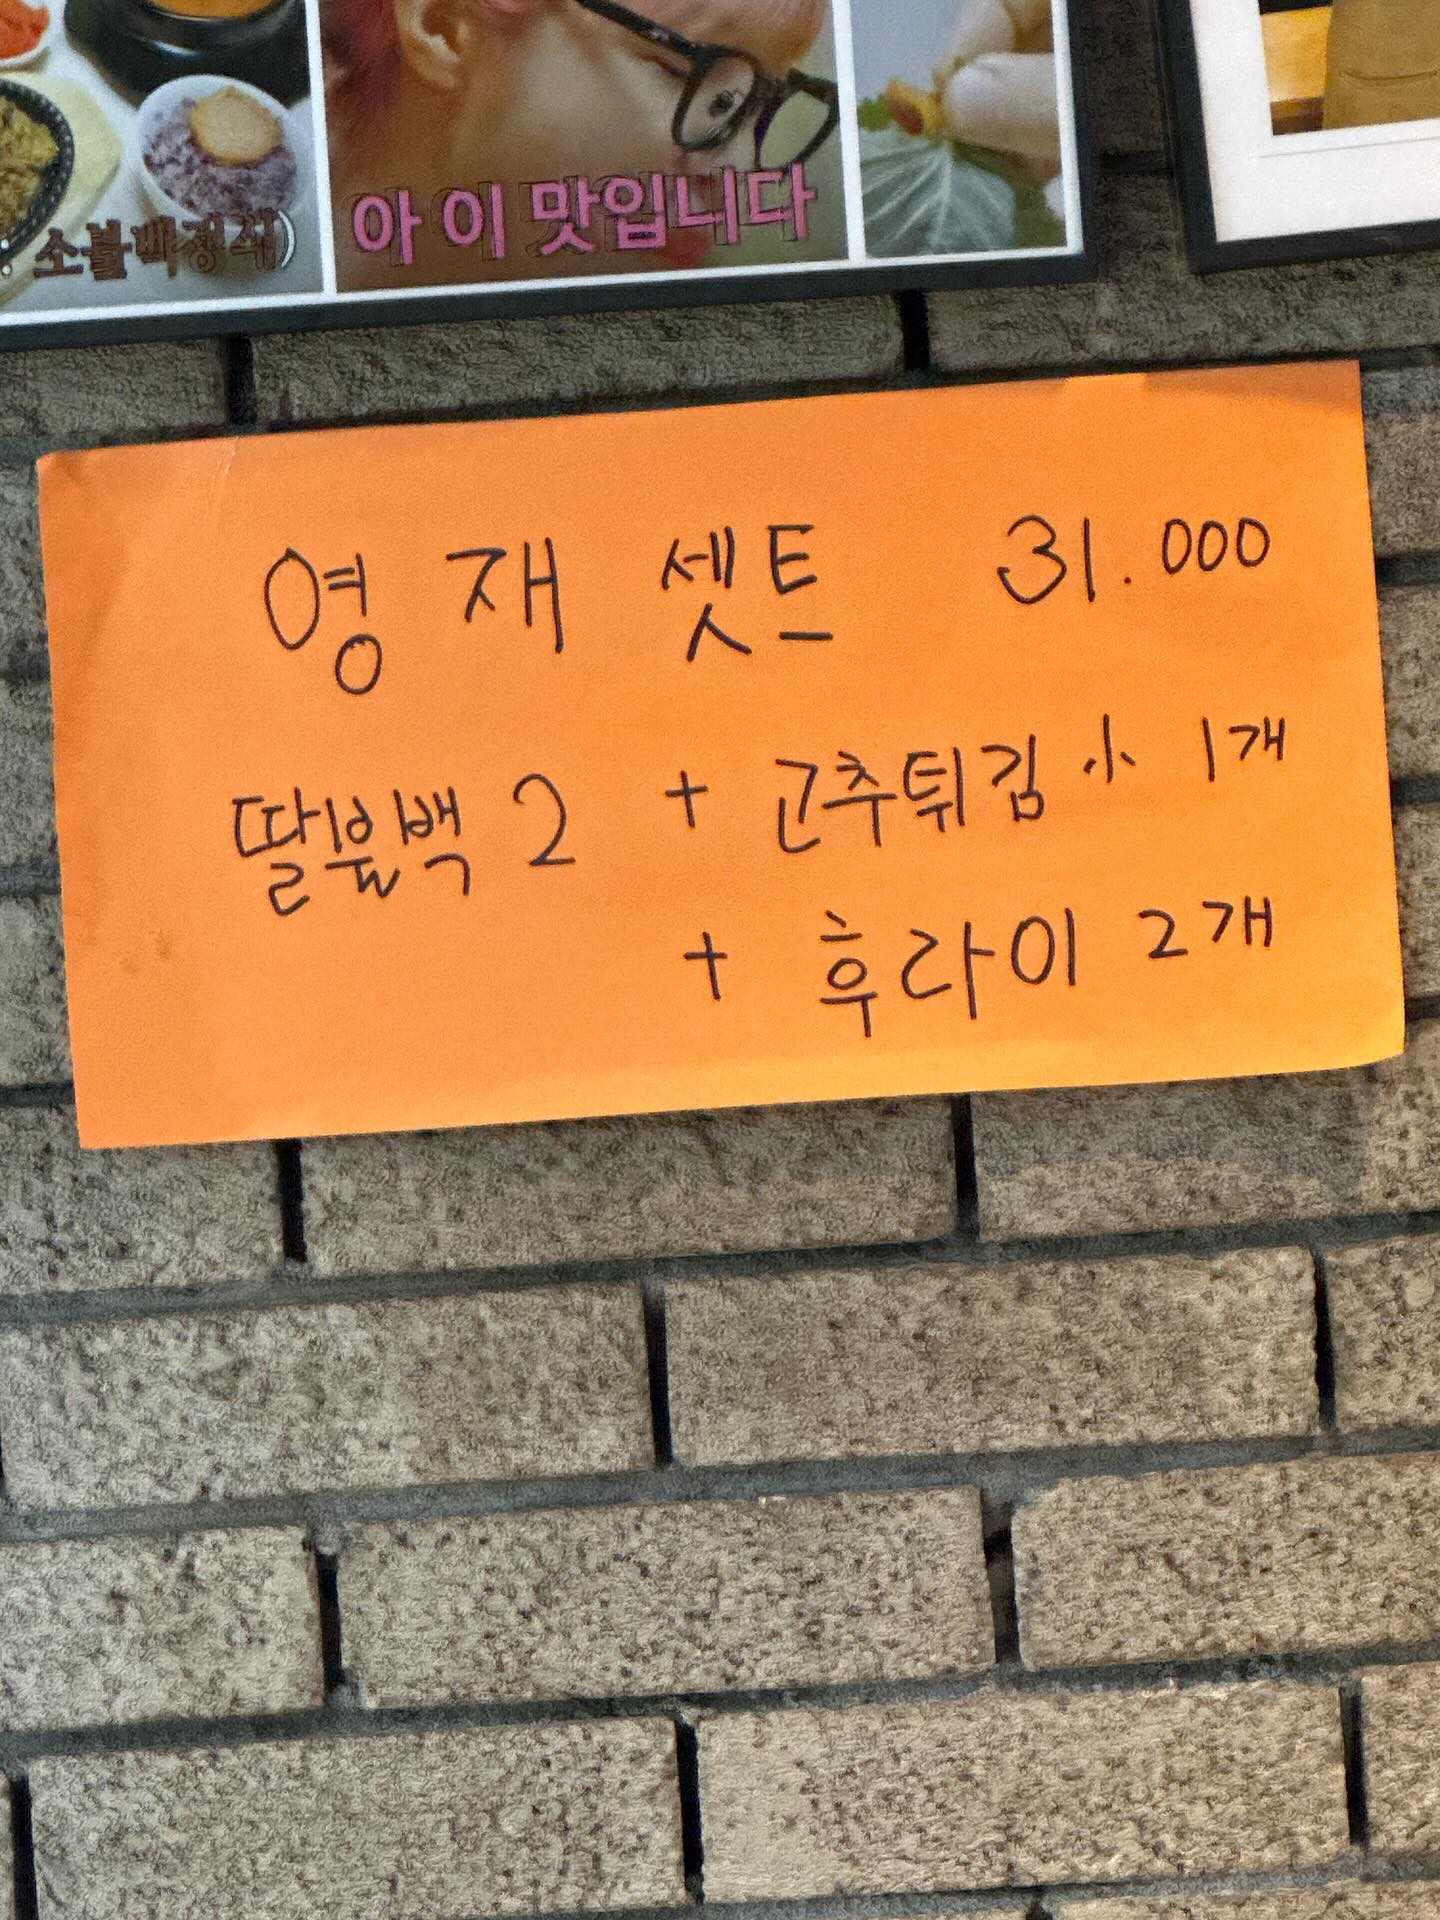 소불백정식)
아 이 맛입니다
영재 셋트 31.000
딸불백 2 + 고추튀김 小 1개
+ 후라이 2개